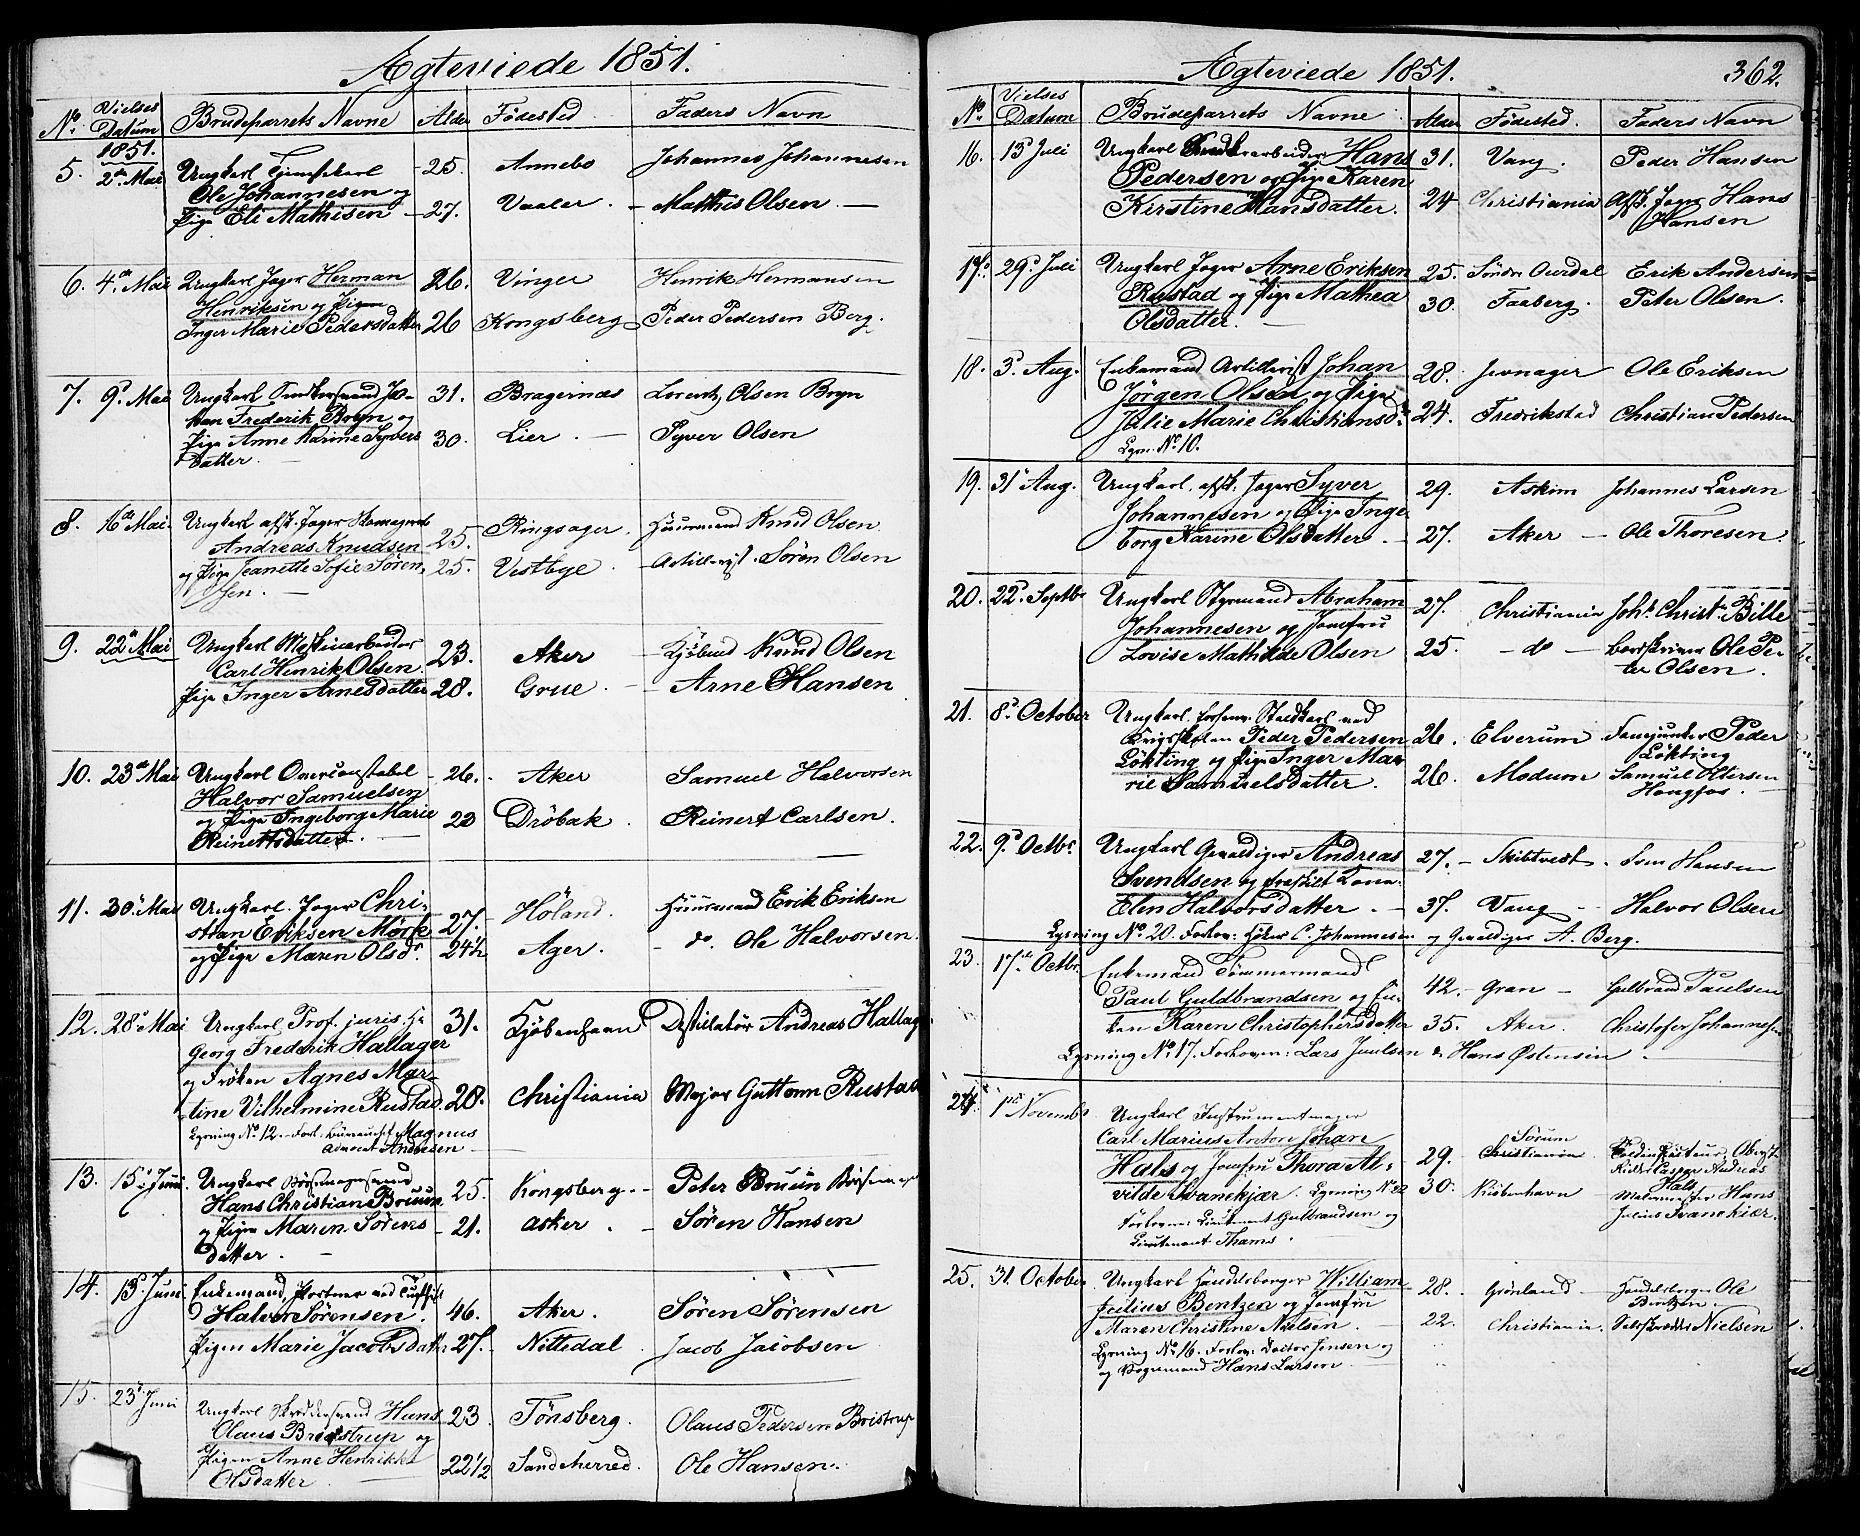 Ægteviede 1851.
No. Vielses Datum Brudeparrets Navne Alder Fødested. Faders Navn
1851.
5. 2den Mai Ungkarl 25. Annebo Johannes Johannesen
Ole Johannesen og
Pige Eli Mathisen 27. Vaaler. Mathis Olsen.
6. 4de Mai Ungkarl Jæger Herman 26. Vinger Henrik Hermansen
Henriksen og Pigen
Inger Marie Pedersdatter 26 Kongsberg Peder Pedersen Berg.
7. 9d Mai Ungkarl Jo- 31. Bragernæs Lorentz Olsen Bryn
han Frederik Bryn og
Pige Anne Karine Syvers 30. Lier. Syver Olsen
datter.
8. 16de Mai. Ungkarl afsk. Jæger Skomagersv. 25. Ringsager. Huusmand Knud Olsen
Andreas Knudsen
og Pige Jeanette Sofie Søren 25. Vestbye. Artillerist Søren Olsen
sen.
9. 22de Mai Ungkarl Maskinarbeider 23. Aker Knud Olsen
Carl Henrik Olsen
Pige Inger Arnesdatter 28. Grue. Arne Hansen
10. 23de Mai Ungkarl Overconstabel 26. Aker Samuel Halvorsen
Halvor Samuelsen
og Pige Ingeborg Marie 23 Drøbak. Reinert Carlsen.
Reinertsdatter.
11. 30d Mai Ungkarl. Jæger Chri- 27. Høland. Huusmand Erik Eriksen
stian Eriksen Mørk
og Pige Maren Olsd. 24½ Ager. do. Ole Halvorsen.
12. 28d Mai Ungkarl Prof. juris. Hr 31. Kjøbenhavn Destillatør Andreas Hallag
Georg Frederik Hallager
og Frøken Agnes Mar-
tine Vilhelmine Rustad 28. Christiania Major Guttorm Rustad
Lysning No. 12. Forl. Magnus
Advocat Andresen
13. 15d Juni Ungkarl Bøssemagersvend 25. Kongsberg. Peter Bruun
Hans Christian Bruun
og Pigen Maren Sørens 21. Asker. Søren Hansen
datter.
14. 13d Juni Enkemand, Portner ved 46. Aker. Søren Sørensen
Halvor Sørensen.
Pigen Marie Jacobsdatter 27. Nittedal Jacob Jacobsen
15. 23d Juni Ungkarl Skræddersvend Hans 23 Tønsberg. Olaus Pedersen Bristrup
Olaus Bristrup og
Pigen Anne Henrikke 22½ Sandeherred. Ole Hansen.
Olsdatter
Ægteviede 1851. 362.
No. Vielses Datum Brudeparrets Navne Alder Fødested. Faders Navn
16. 13 Juli Ungkarl Hans 31. Vang. Peder Hansen
Pedersen og Pige Karen
Kirstine Hansdatter. 24 Christiania Afsk. Jæger Hans
Hansen
17. 29d Juli Ungkarl Jæger Arne Eriksen 25. Søndre Ourdal Erik Andersen
Rustad og Pige Mathea 30. Faaberg. Peter Olsen.
Olsdatter.
18. 3d Aug. Enkemand Artillerist Johan 28. Jevnager Ole Eriksen
Jørgen Olsen og Pige
Julie Marie Christiansd. 24. Fredrikstad Christian Pedersen
Lysn. No. 10.
19. 31d Aug. Ungkarl. afsk. Jæger Syver 29. Askim Johannes Larsen
Johannesen og Pige Inge
borg Karine Olsdatter. 27. Aker Ole Thoresen.
20. 22. Septbr Ungkarl Styrmand Abraham 27. Christiania Joh. Christ. Bille
Johannesen og Jomfru
Lovise Mathilde Olsen 25. do Ole Pe-
ter Olsen.
21. 8d October Ungkarl. Staldkarl ved
Krigsskolen Peder Pedersen 26. Elverum Fanejunker Peder
Løkting og Pige Inger Ma- Løkting
rie Samuelsdatter. 26. Modum Samuel Ottersen
Hougfos.
22. 9d Octbr. Ungkarl Gevaldiger Andreas 27. Skibtvedt. Sven Hansen
Svendsen og fraskilt Kone
Elen Halvorsdatter. 37. Vang Halvor Olsen
Lysning No. 20. Forlov: C. Johannesen og Gevaldiger A. Berg.
23. 17de Octbr. Enkemand Tømmermand
Paul Guldbrandsen og En- 42. Gran Gulbrand Paulsen
ken Karen Christophersdatter 35. Aker. Christofer Johannesen
Lysning No. 17. Forlovere: Lars Juulsen & Hans Østensen.
24. 1ste Novembr Ungkarl Instrumentmager
Carl Marius Anton Johan Sørum
Hals og Jomfru Thora Al- 29. Christiania Ridder Caspar Andreas
Hals
vilde Svanekjær. Lysning No. 22 30. Kiöbenhavn Malermester Hans
Forlovere: Lieutenant Gulbrandsen og Julius Svanekiær.
Lieutenant Thams.
25. 31. October Ungkarl Handelsborger William 28. Grønland Handelsborger Ole
Julius Bentzen og Jomfru Bentzen.
Maren Christine Nielsen. 22. Christiania. Nielsen
Lysning No. 16. Forlov: Doctor Jensen og
og Vognmand Hans Larsen